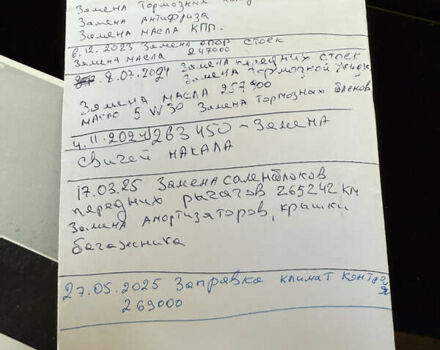 Замена Тормозных
Замена Антифриза
Замена масла КПП.
6.12.2023 Замена опор стоек
Замена масла 247000
8.07.2024 Замена передних стоек
Замена Тормозной жидк
Замена масла 257900
масло 5W30 Замена Тормозных дисков
4.11.2024 263450 - Замена
свичей накала
17.03.25 Замена саленблоков
передних рычагов 265242 км
Замена Амортизаторов, крашки
багажника
27.05.2025 Заправка климат контроля
269000